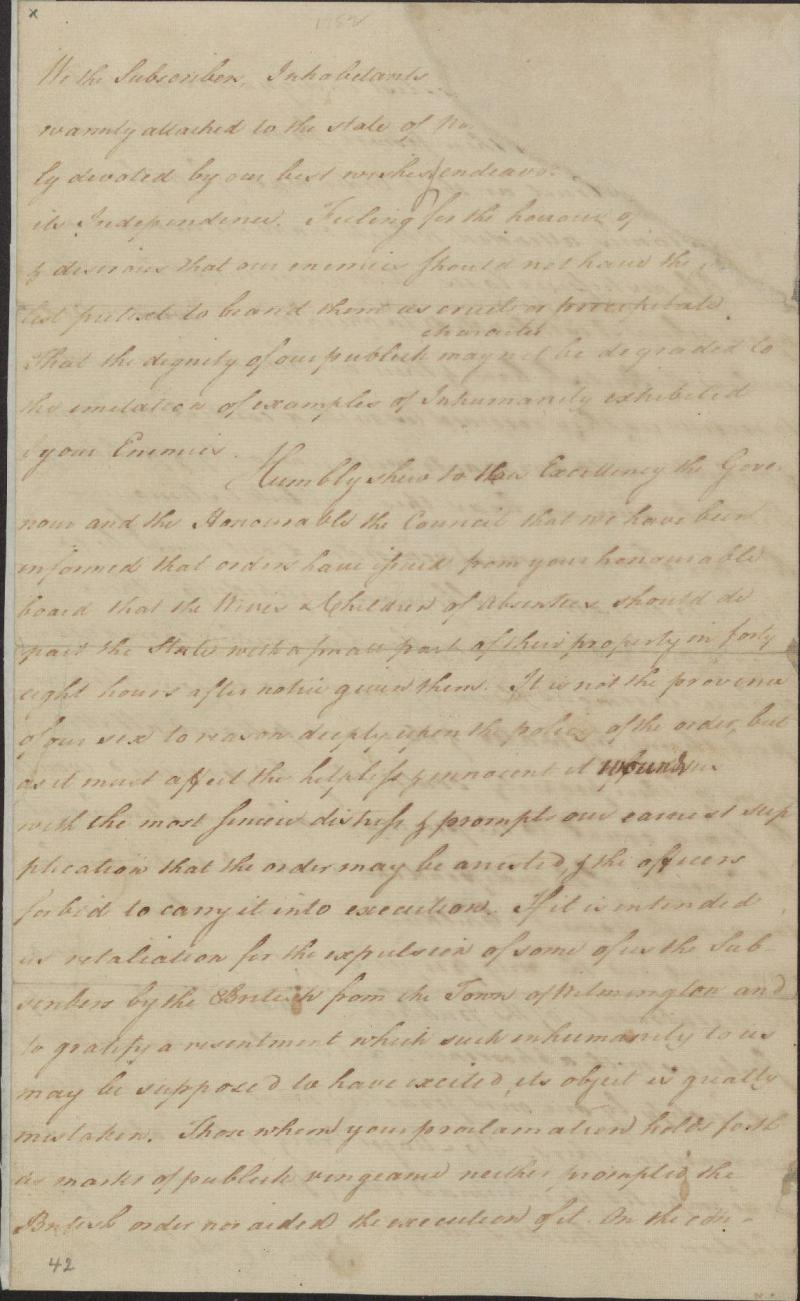 We the Subscribers, Inhabitants
warmly attached to the state of No
ly devoted by our best wishes & endeavo
its Independence. Feeling for the honour of
& desirous that our enemies should not have the
test pretext to brand them as cruel or
character
That the dignity of our publick may not be degraded to
the imitation of examples of Inhumanity exhibited
by our Enemies.
Humbly shew to the Excellency the Gove-
nour and the Honourable the Council that we have been
informed that orders have issued from your honourable
board that the Wives & Children of absentees should de
part the State with a small part of their property in forty
eight hours after notice given them. It is not the province
of our sex to reason deeply upon the policy of the order, but
as it must affect the helpless & innocent it wounds us
with the most sincere distress & prompts our earnest sup
plication that the order may be arrested, & the officers
forbid to carry it into execution. If it is intended
as retaliation for the expulsion of some of us the Sub-
scribers by the British from the Town of Wilmington and
to gratify a resentment which such inhumanity to us
may be supposed to have excited, its object is greatly
mistaken. Those whom your proclamation holds forth
as marks of publick vengeance neither prompted the
British order nor aided the execution of it. On the con-
42